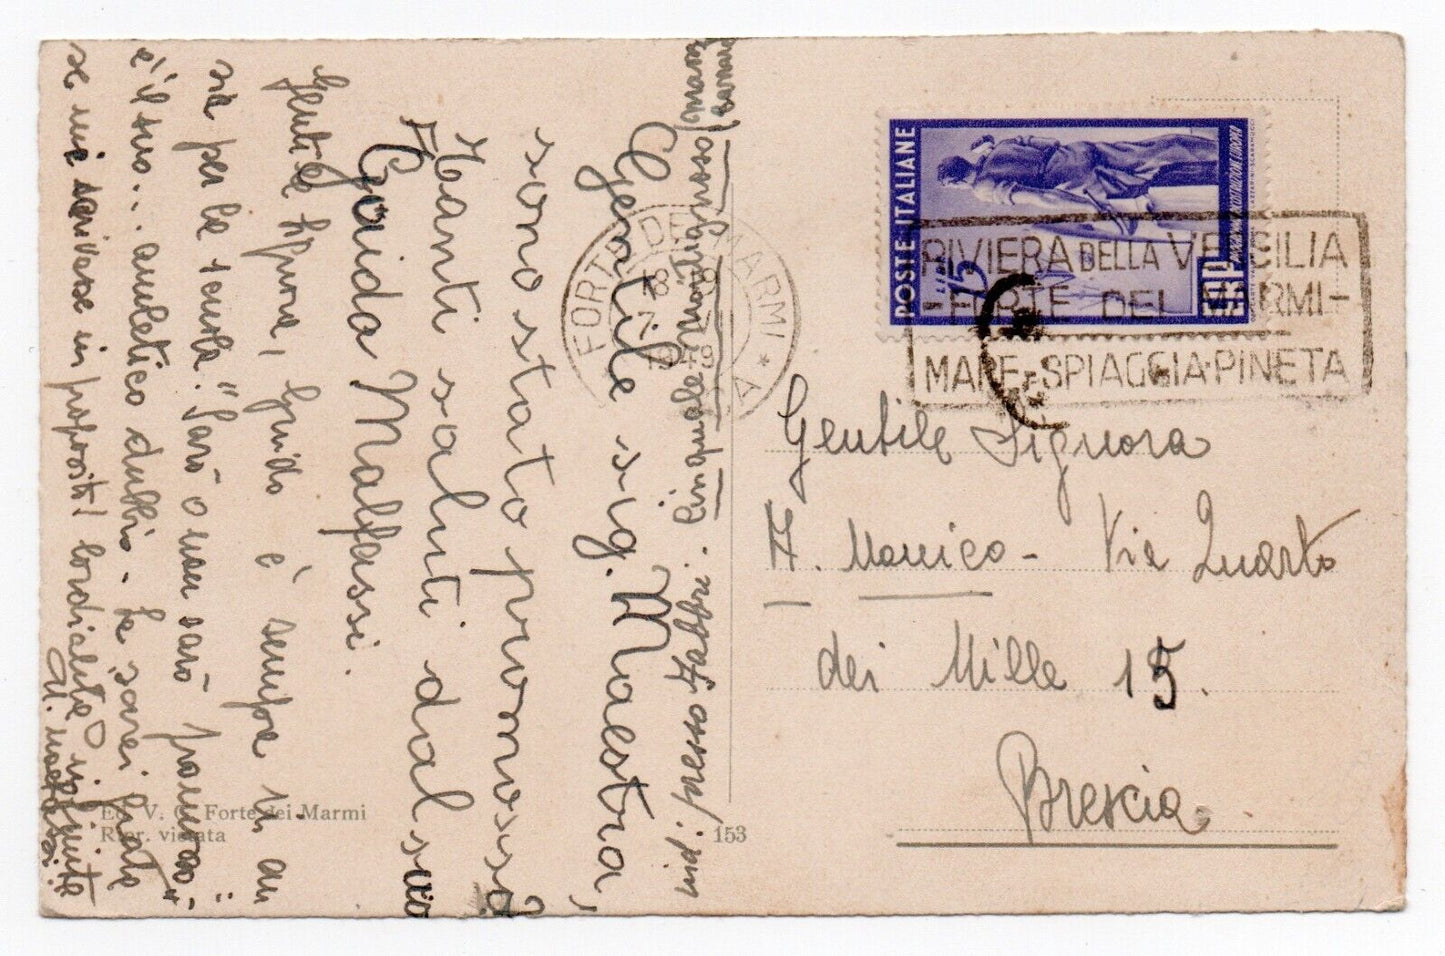 Gentile sig. Maestra,
sono stato promosso!
Tanti saluti dal suo
Guido Malfassi.
Gentile Signora, Guido è sempre in an
sia per la scuola: "Sarò o non sarò promosso"
è il suo... amletico dubbio. Le sarei grate
se mi scrivesse in proposito! Cordialità infinite
M. Malfassi
ind: presso Fabbri. Cinquale Montignoso (Massa
Carrara
POSTE ITALIANE
LIRE 15
ERP
FORTE DEI MARMI
18
7
1949
RIVIERA DELLA VERSILIA
-FORTE DEI MARMI-
MARE-SPIAGGIA-PINETA
Gentile Signora
A. Monico - Via Quarto
dei Mille 15.
Brescia
Ed. V. C. Forte dei Marmi
Ripr. vietata
153